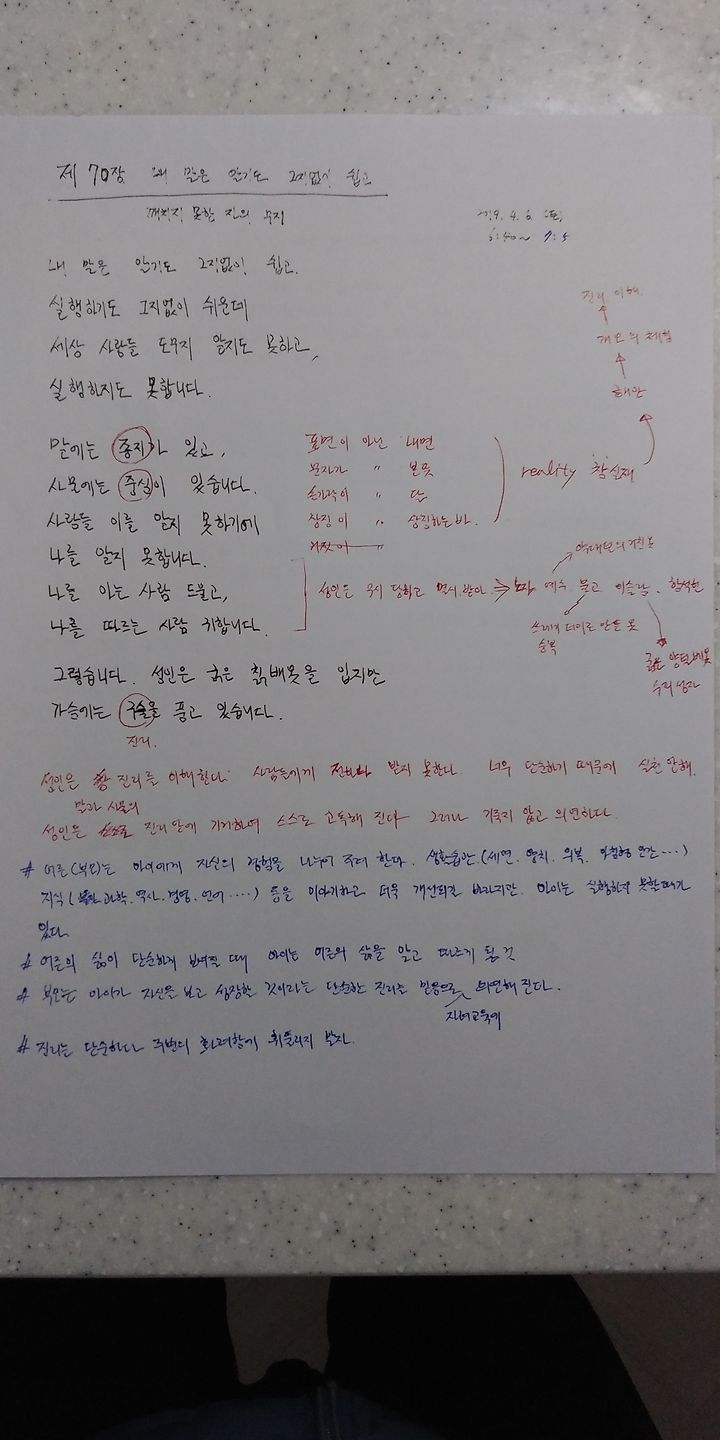 제 70장 내 말은 알기도 그지없이 쉽고
깨치지 못한 자의 무지
2019. 4. 6 (토)
6:40~ 7:5
내 말은 알기도 그지없이 쉽고.
실행하기도 그지없이 쉬운데
세상 사람들 도무지 알지도 못하고,
실행하지도 못합니다.
진리 이해
개오의 체험
혜안
말에는 종지가 있고,
사물에는 중심이 있습니다.
사람들 이를 알지 못하기에
나를 알지 못합니다.
나를 아는 사람 드물고,
나를 따르는 사람 귀합니다.
표면이 아닌 내면
문자가 〃 본뜻
손가락이 〃 달
상징이 〃 상징하는 바.
reality 참실재
성인은 무시 당하고 멸시 받아 ⇒ 예수. 붓고 이슬람. 함석헌
쓰레기 더미로 만든 옷
굵은 양털베옷
그렇습니다. 성인은 굵은 칡베옷을 입지만
가슴에는 구슬을 품고 있습니다.
진리.
성인은 진리를 이해한다. 사람들에게 전하나 받지 못한다. 너무 단순하기 때문에 실천 안해.
말과 사물의
성인은 진리 안에 기거하여 스스로 고독해 진다 그러나 기죽지 않고 의연하다.
# 어른(부모)는 아이에게 자신의 경험을 나누어 주려 한다. 생활습관.(세면. 양치. 의복. 아침형 인간 ....)
지식( 과학. 역사. 경영. 언어 .....) 등을 이야기하고 더욱 개선되길 바라지만. 아이는 실행하지 못할때가
있다.
# 어른의 삶이 단순하게 보여질 때 아이는 어른의 삶을 알고 따르게 될 것
# 부모는 아이가 자신을 보고 성장할 것이라는 단순한 진리를 믿음으로 의연해 진다.
자녀교육에
# 진리는 단순하다 주변의 화려함에 휘둘리지 말자.